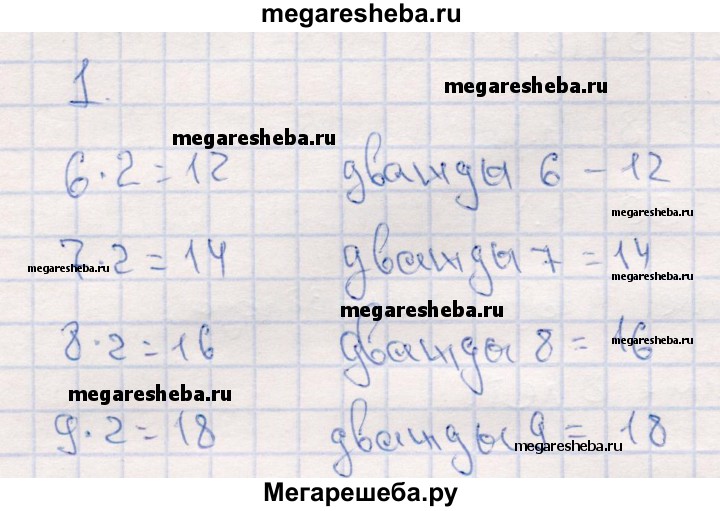 megaresheba.ru
1.
megaresheba.ru
megaresheba.ru
6·2=12 дважды 6 – 12
megaresheba.ru
7·2=14 дважды 7 = 14
megaresheba.ru megaresheba.ru
megaresheba.ru
8·2=16 дважды 8 = 16
megaresheba.ru
megaresheba.ru
9·2=18 дважды 9 = 18
megaresheba.ru
Мегарешеба.ру